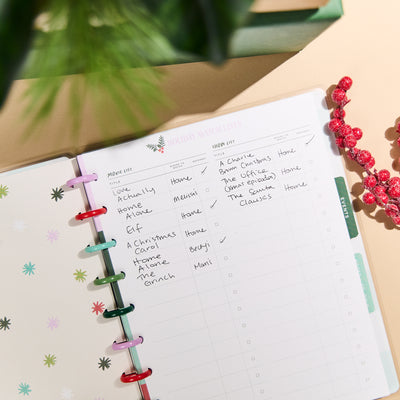 HOLIDAY WATCH LISTS
MOVIE LIST
TITLE
Love
Actually Home
Home
Alone Melissa's
Elf Home
A Christmas
Carol Home
Home
Alone Becky's
The
Grinch
SHOW LIST
TITLE
A Charlie
Brown Christmas Home
The Office
(xmas episodes) Home
The Santa
Clauses Home
EVENTS